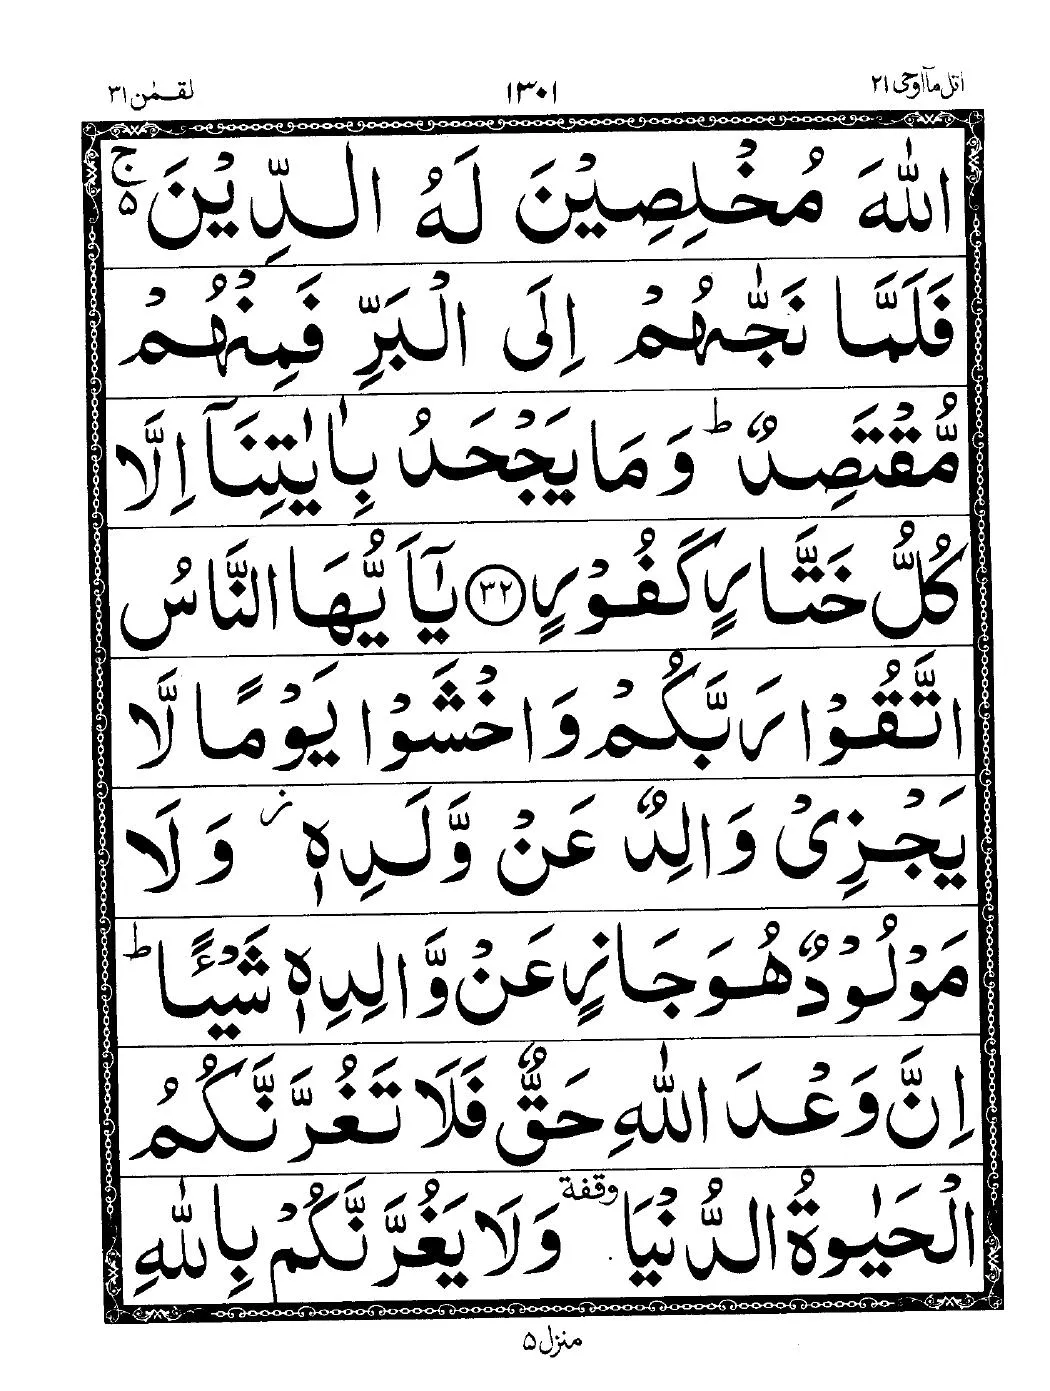 اتل مآاوحی ۲۱
۱۳۰۱
لقمٰن ۳۱
اللّٰهَ مُخْلِصِيْنَ لَهُ الدِّيْنَ ۚ۵
فَلَمَّا نَجّٰىهُمْ اِلَى الْبَرِّ فَمِنْهُمْ
مُّقْتَصِدٌ ؕ وَمَا يَجْحَدُ بِاٰيٰتِنَآ اِلَّا
كُلُّ خَتَّارٍ كَفُوْرٍ ﴿۳۲﴾ يٰٓاَيُّهَا النَّاسُ
اتَّقُوْا رَبَّكُمْ وَاخْشَوْا يَوْمًا لَّا
يَجْزِىْ وَالِدٌ عَنْ وَّلَدِهٖ ز وَلَا
مَوْلُوْدٌ هُوَ جَازٍ عَنْ وَّالِدِهٖ شَيْـًٔا ؕ
اِنَّ وَعْدَ اللّٰهِ حَقٌّ فَلَا تَغُرَّنَّكُمُ
الْحَيٰوةُ الدُّنْيَا وقفة وَلَا يَغُرَّنَّكُمْ بِاللّٰهِ
منزل ۵